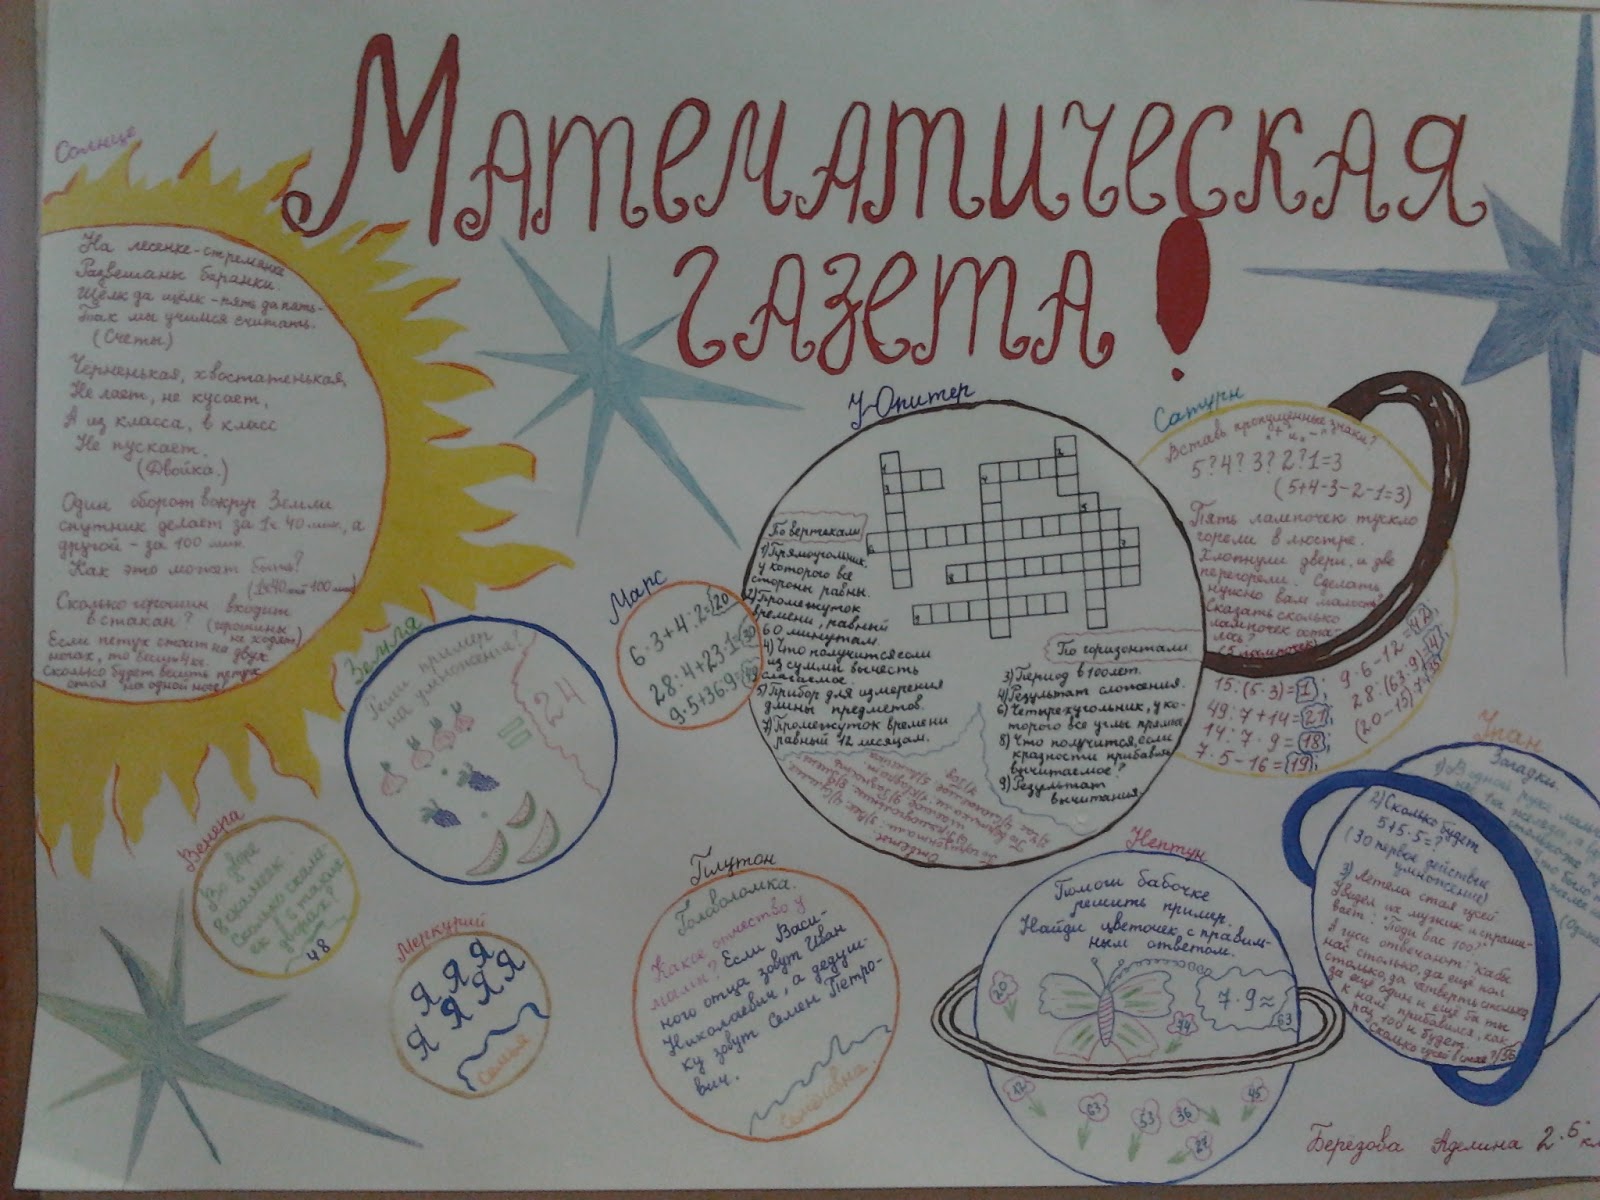 Математическая
газета!
Солнце
На лесенке-стремянке
Развешаны баранки.
Щёлк да щёлк - пять да пять-
Так мы учимся считать.
(Счеты)
Черненькая, хвостатенькая,
Не лает, не кусает,
А из класса, в класс
Не пускает.
(Двойка.)
Один оборот вокруг Земли
спутник делает за 1ч 40 мин, а
другой - за 100 мин.
Как это может быть?
Сколько горошин входит
в стакан? (горошины
не ходят)
Если петух стоит на двух
ногах, то весит 4 кг.
Сколько будет весить петух
стоя на одной ноге?
Земля
Реши пример
на умножение?
= 24
Марс
6·3+4:2=20
28:4+23·1=30
9·5+36:9=49
Ю-Опитер
По вертикали
1) Прямоугольник,
у которого все
стороны равны.
2) Промежуток
времени, равный
60 минутам.
4) Что получится если
из суммы вычесть
слагаемое.
5) Прибор для измерения
длины предметов.
7) Промежуток времени
равный 12 месяцам.
По горизонтали
3) Период в 100 лет.
4) Результат сложения.
6) Четырехугольник, у ко-
торого все углы прямые
8) Что получится, если
к разности прибавить
вычитаемое?
9) Результат
вычитания.
Сатурн
Вставь пропущенные знаки?
"+" и "-"
5?4?3?2?1=3
(5+4-3-2-1=3)
Пять лампочек тускло
горели в люстре.
Хлопнули двери, и две
перегорели. Сделать
нужно вам малость
Сказать сколько
лампочек оста-
лась?
(5 лампочек)
15:(5·3)=1;
49:7+14=21;
14:7·9=18;
7·5-16=19;
9·6-12=42;
28:(63:9)=4;
Уран
Загадки.
2) Сколько будет
5+5·5=?
(30 первое действие
умножение)
3) Летела стая гусей
Увидел их мужик и спраши-
вает: "Поди вас 100?"
А гуси отвечают: "Кабы
нас столько, да ещё пол
столько, да четверть столько,
да ещё один и ещё бы ты
к нам прибавился, как
раз 100 и будет.
Сколько гусей в стае? (36)
Венера
Во дворе
8 скамеек
Сколько скаме-
ек в 6 таких
дворах?
48
Меркурий
Я Я Я
Я Я Я Я
семья
Плутон
Головоломка.
Какое отчество у
мамы? Если Васи-
ного отца зовут Иван
Николаевич, а дедуш-
ку зовут Семен Петро-
вич.
Семёновна.
Нептун
Помоги бабочке
решить пример.
Найди цветочек с правиль-
ным ответом.
7·9=
63
20
74
63
53
36
45
Березова Аделина 2.5 кл